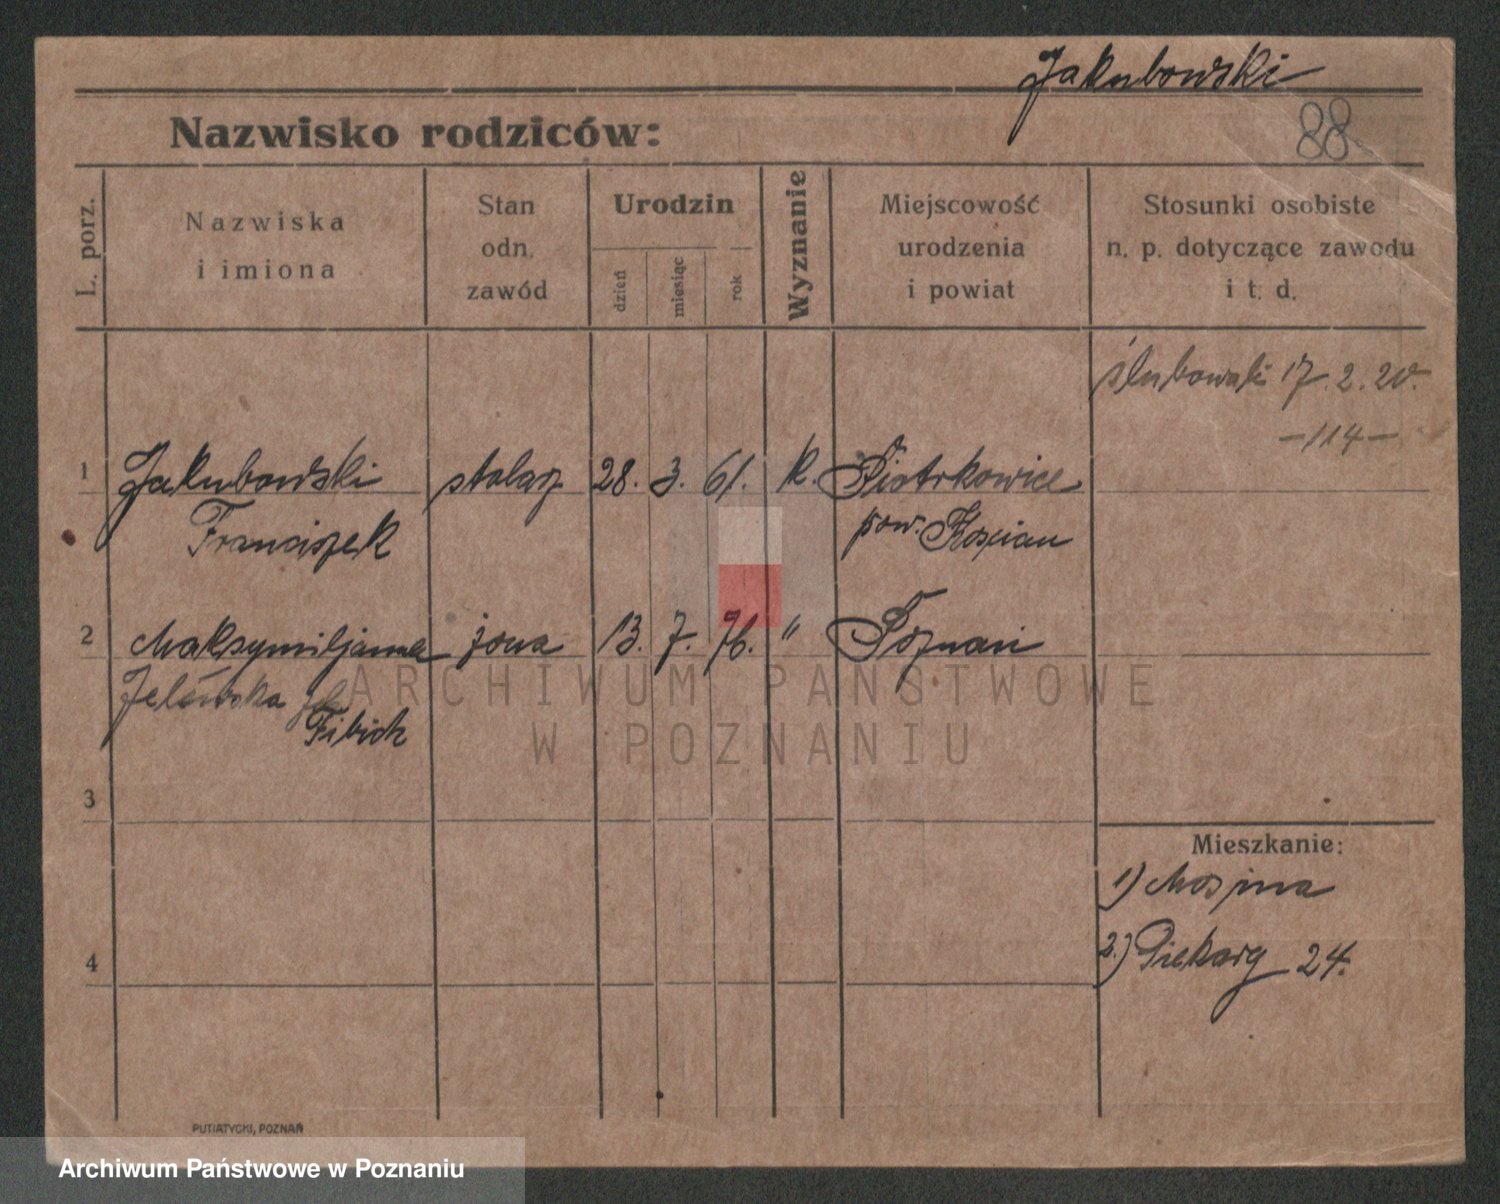 Jakubowski
88
Nazwisko rodziców:
L. porz.
Nazwiska
i imiona
Stan
odn.
zawód
Urodzin
dzień
miesiąc
rok
Wyznanie
Miejscowość
urodzenia
i powiat
Stosunki osobiste
n. p. dotyczące zawodu
i t. d.
ślubowali 17.2.20.
-114-
1 Jakubowski stolarz 28. 3. 61. k. Piotrkowice
Franciszek pow. Kościan
2 Maksymiljanna żona 13. 7. 76. " Poznań
Fibich
3
4
Mieszkanie:
1) Mosina
2.) Piekary 24.
PUTIATYCKI, POZNAŃ
ARCHIWUM PAŃSTWOWE
W POZNANIU
Archiwum Państwowe w Poznaniu